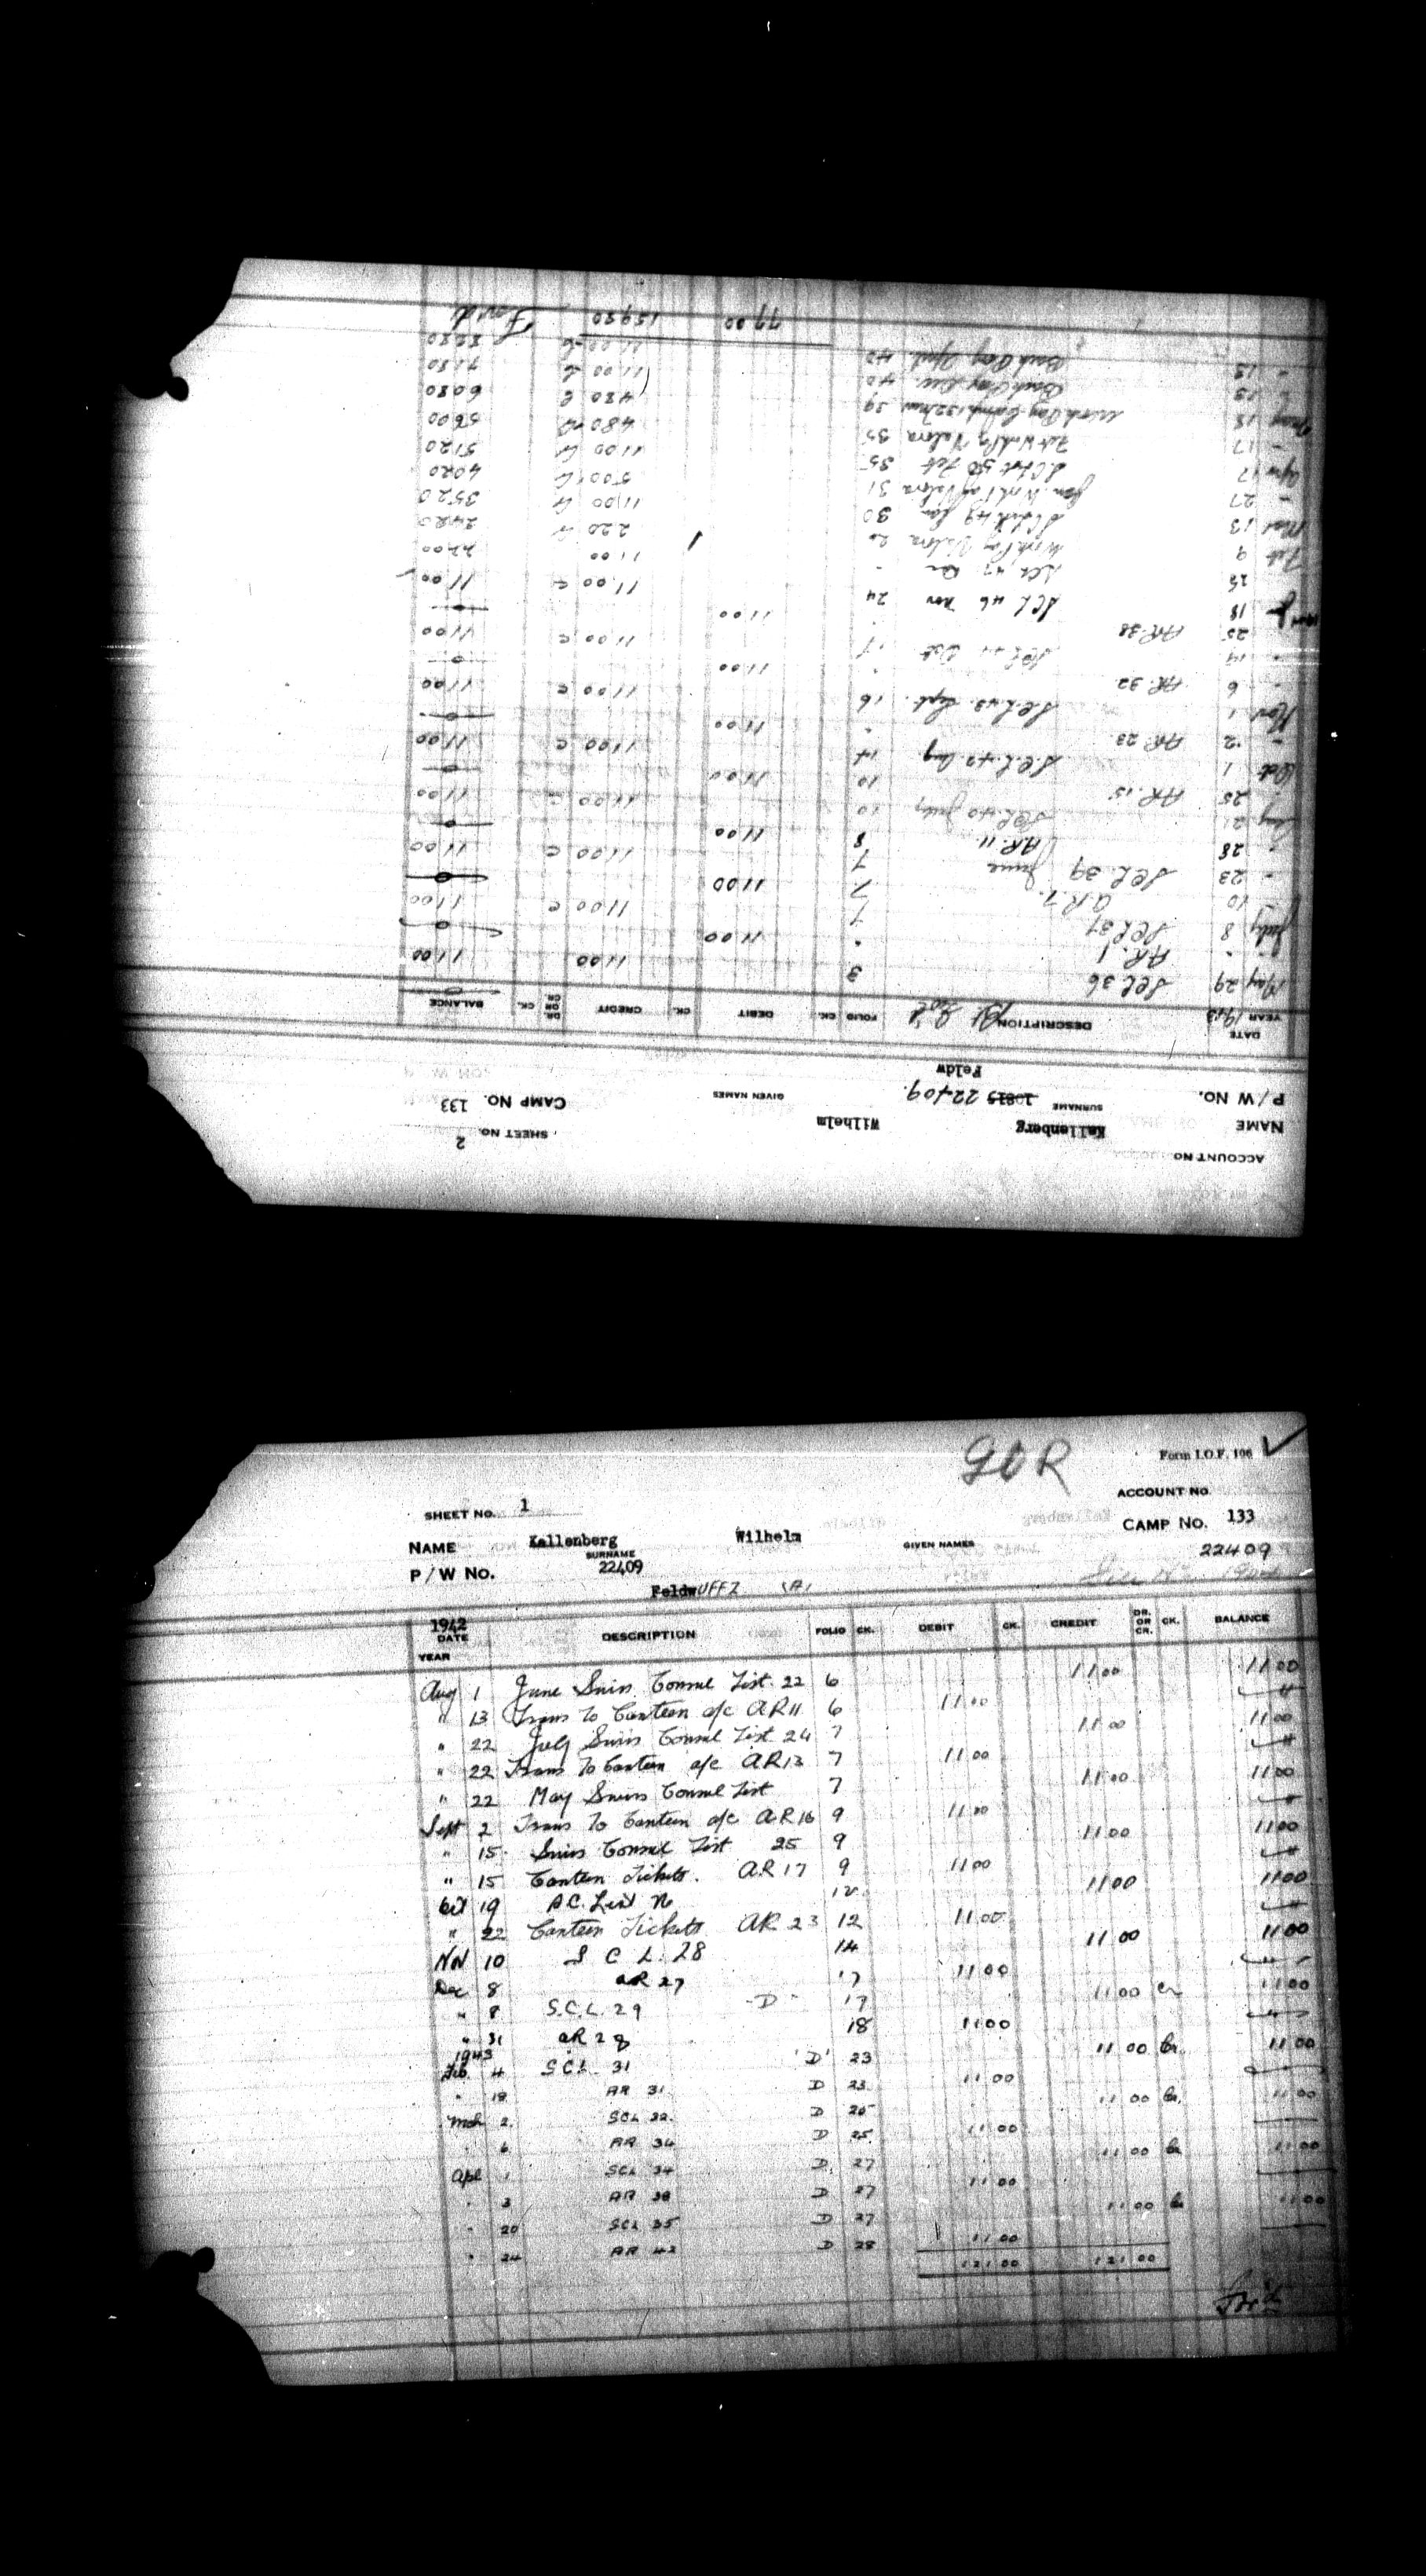 ACCOUNT NO
SHEET NO. 2
NAME Kallenberg Wilhelm
SURNAME GIVEN NAMES
CAMP NO. 133
P/W NO. 10815 22409.
Feldw
DATE YEAR 1943 DESCRIPTION FOLIO CK. DEBIT CK. CREDIT DR. OR CR. CK. BALANCE
May 29 SCL 36 3 11 00 11 00
" " AR. 1 " 11 00 0
July 8 SCL 37 7 11 00 c 11 00
" 10 a.R 7. 7 11 00 0
" 23 SCL 39 June 7 11 00 c 11 00
" 28 AR. 11. 8 11 00 0
Aug 21 SCL 40 July 10 11 00 c 11 00
" 25 AR. 15 10 11 00 0
Oct 1 S.C.L. 42 Aug 14 11 00 c 11 00
" 2 AR. 23 " 11 00 0
Nov 1 SCL 43. Sept. 16 11 00 c 11 00
" 6 AR. 32 " 11 00 0
" 14 SCL Oct 17 11 00 c 11 00
" 25 AR. 38 " 11 00 0
18 SCL 46 Nov 24 11 00 c 11 00
25 SCL 47 - 11 00 22 00
Feb 9 Work Pay 20 2 20 24 20
Mar 13 49 Jan 30 11 00 35 20
" 27 Jan. Work Pay 31 5 00 40 20
Apr 17 50 Feb 35 11 00 51 20
" 17 Feb Work 35 4 80 56 00
May 18 Work Pay 39 4 80 60 80
13 Back Pay 40 11 00 71 80
" 13 Back Pay April. 42 11 00 82 80
77 00 159 80 Forw'd
GOR
Form I.O.F. 106
SHEET NO. 1
ACCOUNT NO.
NAME Kallenberg Wilhelm
SURNAME GIVEN NAMES
CAMP NO. 133
P/W NO. 22409
22409
Feldw UFFZ (A)
1942
DATE YEAR DESCRIPTION FOLIO CK. DEBIT CK. CREDIT DR. OR CR. CK. BALANCE
Aug 1 June Swiss Consul List. 22 6 11 00 11 00
" 13 Trans To Canteen a/c AR 11 6 11 00
" 22 July Swiss Consul List 24 7 11 00 11 00
" 22 Trans to Canteen a/c AR 13 7 11 00
" 22 May Swiss Consul List 7 11 00 11 00
Sept 2 Trans To Canteen a/c AR 16 9 11 00
" 15. Swiss Consul List 25 9 11 00 11 00
" 15 Canteen Tickets. AR 17 9 11 00
Oct 19 List 12 11 00 11 00
" 22 Canteen Tickets AR 23 12 11 00
Nov 10 S C L. 28 14 11 00 11 00
Dec 8 aR 27 17 11 00
" 8 S.C.L. 29 D 17 11 00 Cr 11 00
" 31 aR 28 18 11 00
1943
Feb 4 S C L 31 'D' 23 11 00 Cr. 11 00
" 18 AR 31 D 23 11 00
Mch 2. SCL 32. D 25 11 00 Cr. 11 00
" 6 AR 34 D 25. 11 00
Apl 1 SCL 34 D 27 11 00 Cr 11 00
" 3 AR 38 D 27 11 00
" 20 SCL 35 D 27 11 00 Cr 11 00
" 24 AR 42 D 28 11 00
121 00 121 00
For'd